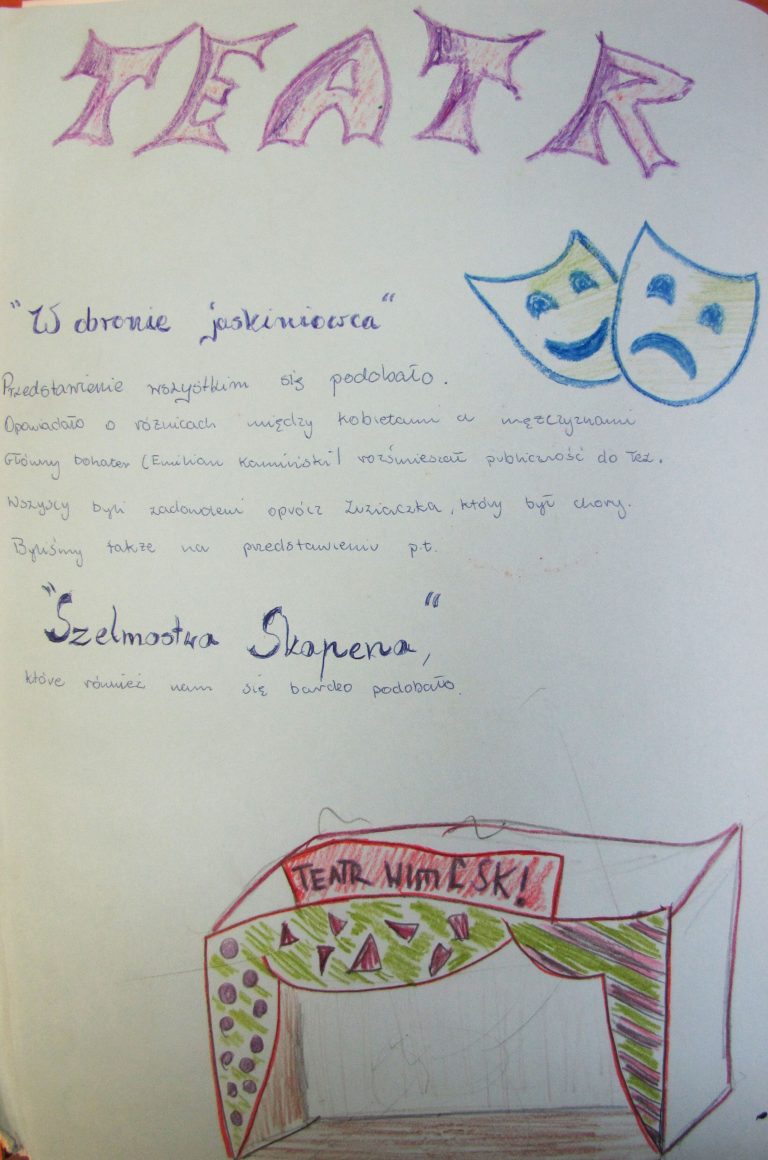 TEATR
"W obronie jaskiniowca"
Przedstawienie wszystkim się podobało.
Opowiadało o różnicach między kobietami a mężczyznami
Główny bohater (Emilian Kamiński) rozśmieszał publiczność do łez.
Wszyscy byli zadowoleni oprócz Zuziaczka, który był chory.
Byliśmy także na przedstawieniu p.t.
"Szelmostwa Skapena",
które również nam się bardzo podobało.
TEATR SK!